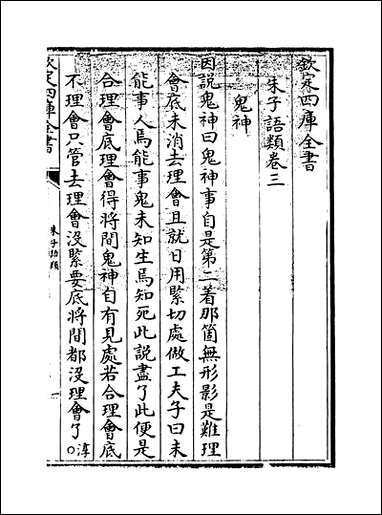 欽定四庫全書
朱子語類卷三
鬼神
因說鬼神曰鬼神事自是第二着那箇無形影是難理
會底未消去理會且就日用緊切處做工夫子曰未
能事人焉能事鬼未知生焉知死此說盡了此便是
合理會底理會得將間鬼神自有見處若合理會底
不理會只管去理會沒緊要底將間都沒理會了淳○
欽定四庫全書
朱子語類
一